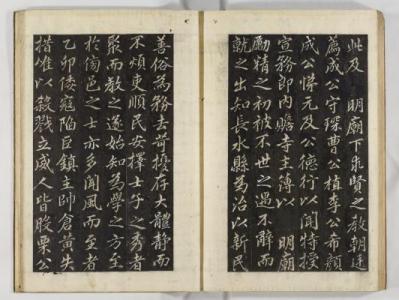 此及 明廟下求賢之教朝廷
薦成公守琛曺公植李公希顔
成公悌元及公德行以聞特授
宣務郎內贍寺主簿以 明廟
勵精之初被不世之遇不辭而
就之出知長水縣為治以新民
善俗為務去苛擾存大體靜而
不煩吏順民安擇士子之秀者
聚而教之遂始知為學之方至
於傍邑之士亦多聞風而至者
乙卯倭寇陷巨鎮主帥倉黃失
措唯以殺戮立威人皆股栗公